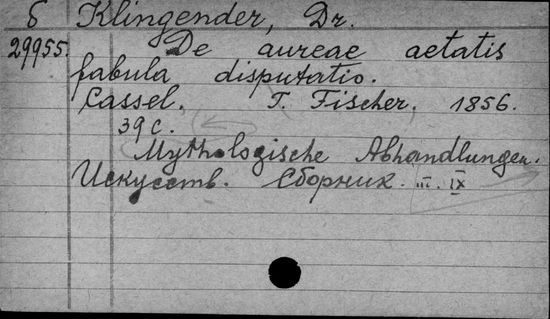 б Klingender, Dr.
29955. De aureae aetatis
fabula disputatio.
Cassel. T. Fischer. 1856.
39 c.
(Mythologische Abhandlungen.
Искусств. Сборник. III. IX